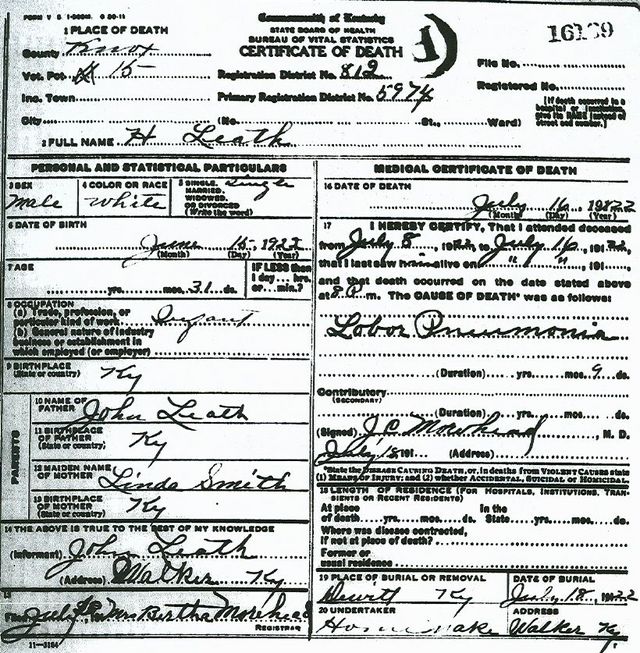 FORM V. S. 1-
Commonwealth of Kentucky
STATE BOARD OF HEALTH
BUREAU OF VITAL STATISTICS
CERTIFICATE OF DEATH
16139
1 PLACE OF DEATH
County Knox
Vot. Pct. 15
Inc. Town
City (No. St., Ward)
Registration District No. 812
Primary Registration District No. 5974
File No.
Registered No.
[If death occurred in a hospital or institution, give its NAME instead of street and number.]
2 FULL NAME H Leath
PERSONAL AND STATISTICAL PARTICULARS
3 SEX
Male
4 COLOR OR RACE
White
5 SINGLE, MARRIED, WIDOWED, OR DIVORCED (Write the word)
Single
6 DATE OF BIRTH
June 15, 1922
(Month) (Day) (Year)
7 AGE
yrs. mos. 31 ds.
IF LESS than 1 day hrs. or min.?
8 OCCUPATION
(a) Trade, profession, or particular kind of work Infant
(b) General nature of industry
business or establishment in
which employed (or employer)
9 BIRTHPLACE
(State or country) Ky
PARENTS
10 NAME OF FATHER John Leath
11 BIRTHPLACE OF FATHER
(State or country) Ky
12 MAIDEN NAME OF MOTHER Linda Smith
13 BIRTHPLACE OF MOTHER
(State or country) Ky
14 THE ABOVE IS TRUE TO THE BEST OF MY KNOWLEDGE
(Informant) John Leath
(Address) Walker Ky
15
Filed July 18, Mrs Birtha Morehead
REGISTRAR
11-3184
MEDICAL CERTIFICATE OF DEATH
16 DATE OF DEATH
July 16 1922
(Month) (Day) (Year)
17 I HEREBY CERTIFY, That I attended deceased
from July 8, 1922, to July 16, 1922,
that I last saw him alive on " ", 191
and that death occurred on the date stated above
at 8 P m. The CAUSE OF DEATH* was as follows:
Lobor Pneumonia
(Duration) yrs. mos. 9 ds.
Contributory
(SECONDARY)
(Duration) yrs. mos. ds.
(Signed) J.C. Morehead, M. D.
July 18 191 (Address)
*State the DISEASE CAUSING DEATH, or, in deaths from VIOLENT CAUSES state
(1) MEANS OF INJURY; and (2) whether ACCIDENTAL, SUICIDAL or HOMICIDAL.
18 LENGTH OF RESIDENCE (FOR HOSPITALS, INSTITUTIONS, TRANSIENTS OR RECENT RESIDENTS)
At place of death yrs. mos. ds. In the State yrs. mos. ds.
Where was disease contracted,
if not at place of death?
Former or
usual residence
19 PLACE OF BURIAL OR REMOVAL
Dewitt Ky
DATE OF BURIAL
July 18, 1922
20 UNDERTAKER
ADDRESS
Walker Ky